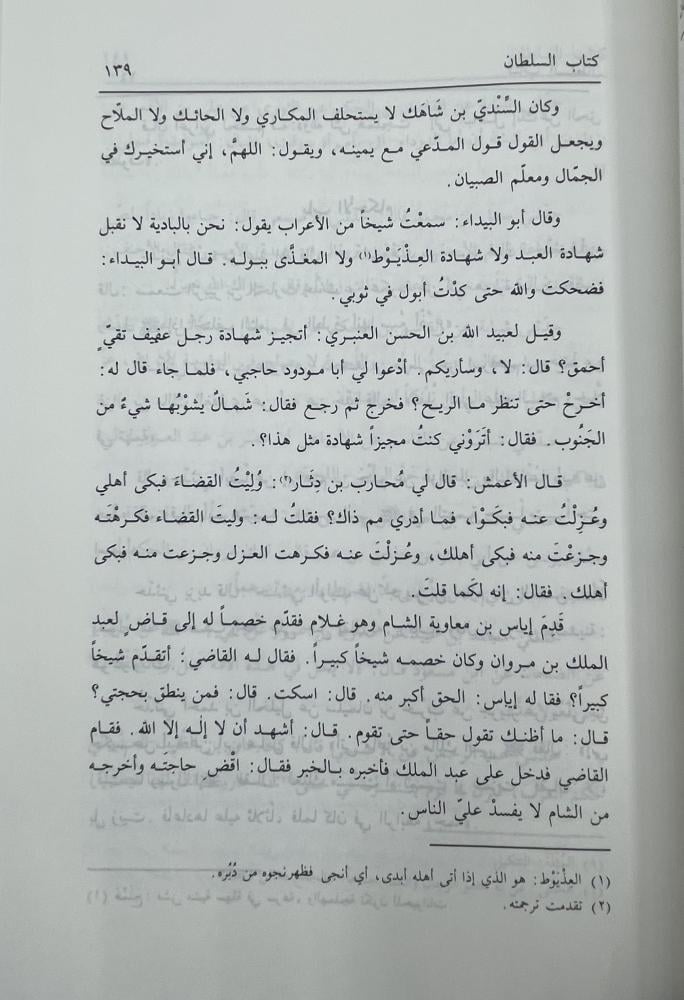 كتاب السلطان
١٣٩
وكان السِّنْديّ بن شَاهَك لا يستحلف المكاري ولا الحائك ولا الملّاح
ويجعل القول قول المدّعي مع يمينه، ويقول: اللهمُّ، إني أستخيرك في
الجمّال ومعلّم الصبيان.
وقال أبو البيداء: سمعْتُ شيخاً من الأعراب يقول: نحن بالبادية لا نقبل
شهادة العبد ولا شهادة العِذْيَوْط(١) ولا المغذَّى ببوله. قال أبو البيداء:
فضحكت والله حتى كدْتُ أبول في ثوبي.
وقيل لعبيد الله بن الحسن العنبري: أتجيز شهادة رجل عفيف تقيّ
أحمق؟ قال: لا، وسأريكم. أدْعوا لي أبا مودود حاجبي، فلما جاء قال له:
أخرجْ حتى تنظر ما الريح؟ فخرج ثم رجع فقال: شَمالٌ يشوْبُها شيءٌ من
الجَنُوب. فقال: أتَرَوْني كنتُ مجيزاً شهادة مثل هذا؟.
قال الأعمش: قال لي مُحارب بن دِثَار(٢): وُلِيْتُ القضاءَ فبكى أهلي
وعُزِلْتُ عنه فبكَوْا، فما أدري مم ذاك؟ فقلتُ له: وليتَ القضاء فكرهْتَه
وجزعْتَ منه فبكى أهلك، وعُزلْتَ عنه فكرهت العزل وجزعت منه فبكى
أهلك. فقال: إنه لكَما قلتَ.
قَدِمَ إياس بن معاوية الشام وهو غلام فقدّم خصماً له إلى قاضٍ لعبد
الملك بن مروان وكان خصمه شيخاً كبيراً. فقال له القاضي: أتقدّم شيخاً
كبيراً؟ فقا له إياس: الحق أكبر منه. قال: اسكت. قال: فمن ينطق بحجتي؟
قال: ما أظنك تقول حقاً حتى تقوم. قال: أشهد أن لا إلٰه إلا الله. فقام
القاضي فدخل على عبد الملك فأخبره بالخبر فقال: اقْضِ حاجتَه وأخرجه
من الشام لا يفسدْ عليّ الناس.
(١) العِذْيَوْط: هو الذي إذا أتى أهله أبدى، أي أنجى فظهر نجوه من دُبُره.
(٢) تقدمت ترجمته.